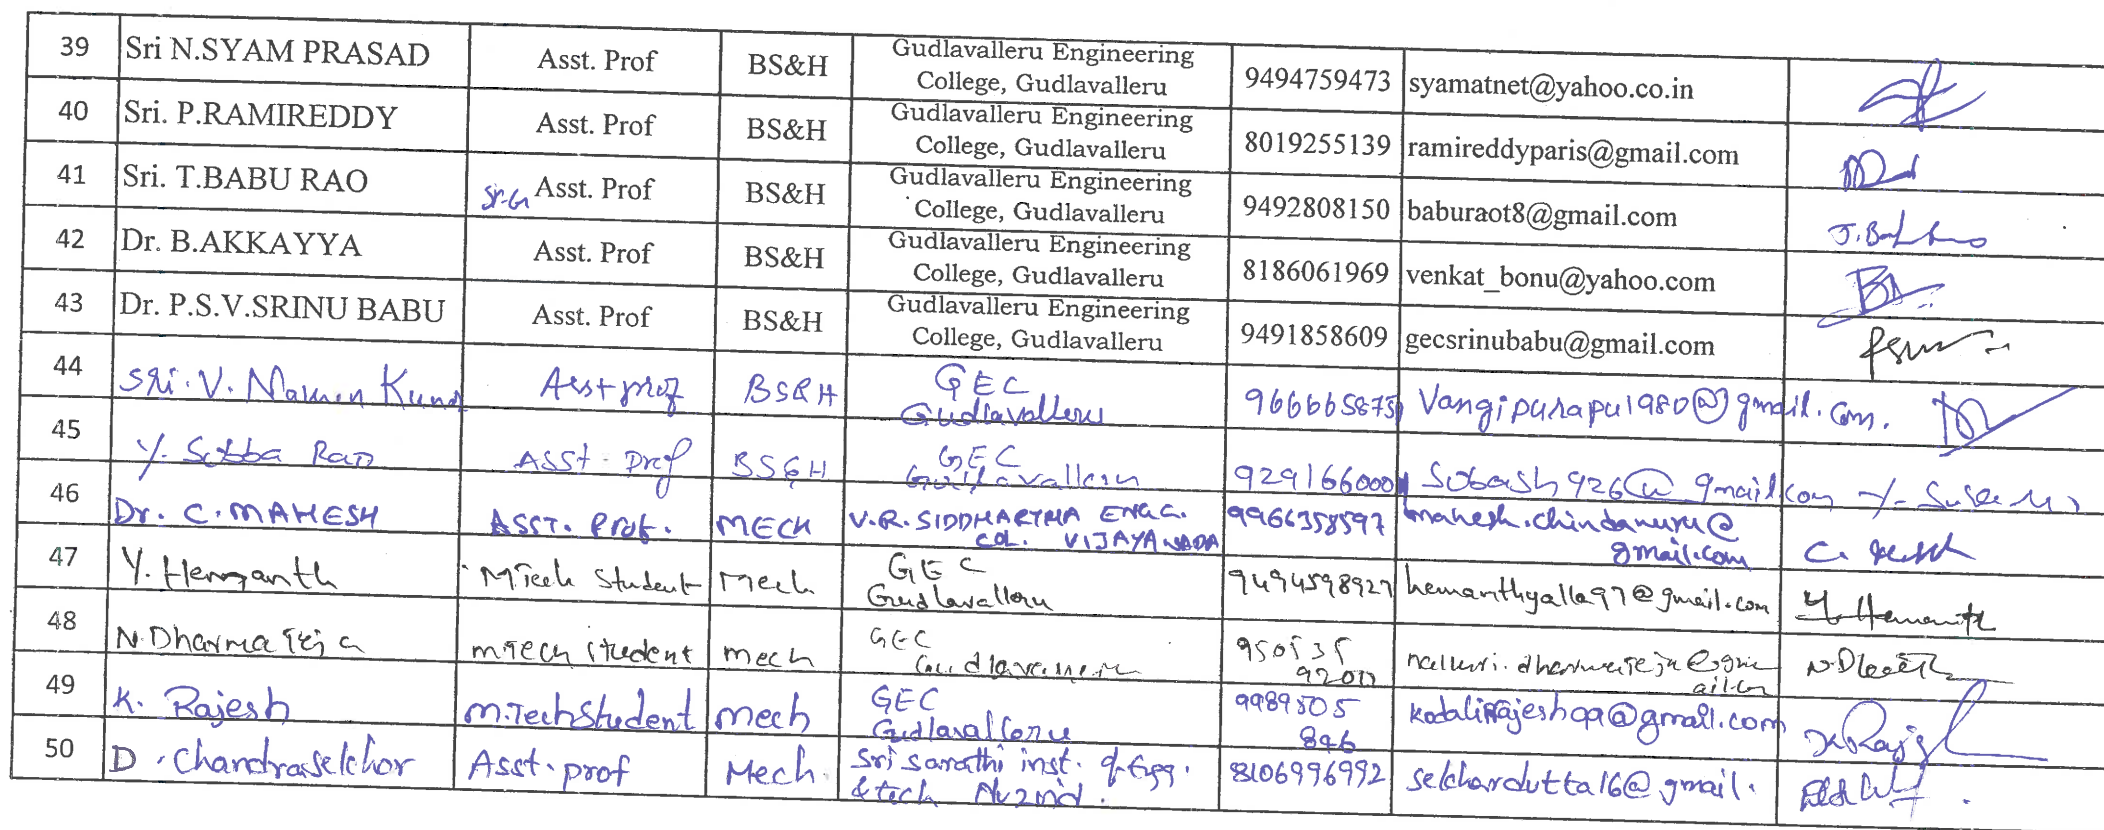 39 Sri N.SYAM PRASAD Asst. Prof BS&H Gudlavalleru Engineering
College, Gudlavalleru 9494759473 syamatnet@yahoo.co.in
40 Sri. P.RAMIREDDY Asst. Prof BS&H Gudlavalleru Engineering
College, Gudlavalleru 8019255139 ramireddyparis@gmail.com
41 Sri. T.BABU RAO Sr.G Asst. Prof BS&H Gudlavalleru Engineering
College, Gudlavalleru 9492808150 baburaot8@gmail.com
42 Dr. B.AKKAYYA Asst. Prof BS&H Gudlavalleru Engineering
College, Gudlavalleru 8186061969 venkat_bonu@yahoo.com
43 Dr. P.S.V.SRINU BABU Asst. Prof BS&H Gudlavalleru Engineering
College, Gudlavalleru 9491858609 gecsrinubabu@gmail.com
44 Sri. V. Asst prof BS&H GEC
Gudlavalleru 9666665875 Vangipurapu1980@gmail.com.
45 Y. Subba Rao Asst. Prof BS&H GEC
Gudlavalleru 9291660001 Subash926@gmail.com
46 Dr. C. MAHESH ASST. Prof. MECH V.R. SIDDHARTHA ENGG.
COL. VIJAYAWADA 9966358597 mahesh.chindanuru@
gmail.com
47 Y. Hemanth MTech Student Mech GEC
Gudlavalleru 9494598927 hemanthyalla97@gmail.com Y. Hemanth
48 N. Dharma Teja mtech student mech GEC
Gudlavalleru
49 K. Rajesh M.Tech Student mech GEC
Gudlavalleru 9989505
846 kodalirajesh99@gmail.com K Rajesh
50 D. Chandrasekhar Asst. prof Mech. Sri Sarathi inst. of Engg.
& tech Nuzvid. 8106996992 sekhardutta16@gmail.